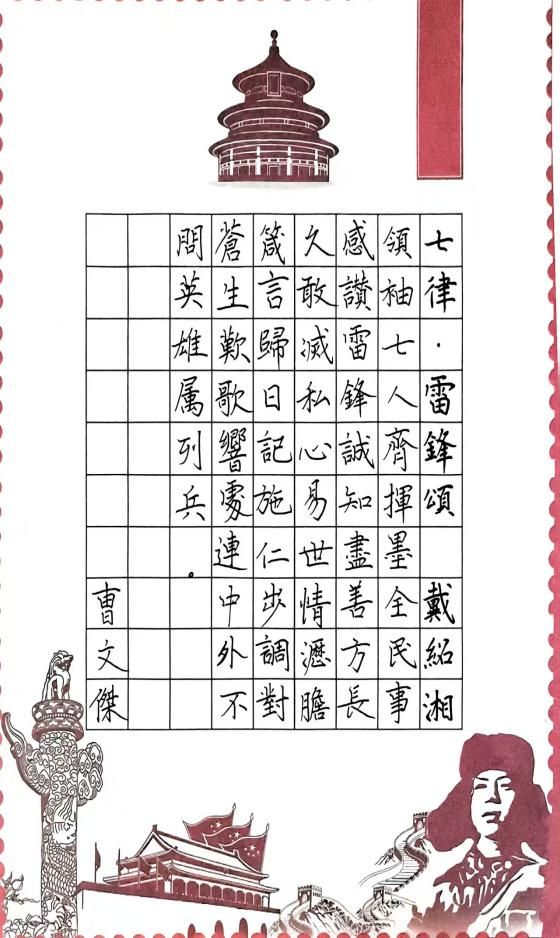 七律·雷鋒頌 戴紹湘
領袖七人齊揮墨全民事
感讚雷鋒誠知盡善方長
久敢滅私心易世情瀝膽
箴言歸日記施仁步調對
蒼生歎歌響處連中外不
問英雄属列兵。
曹文傑